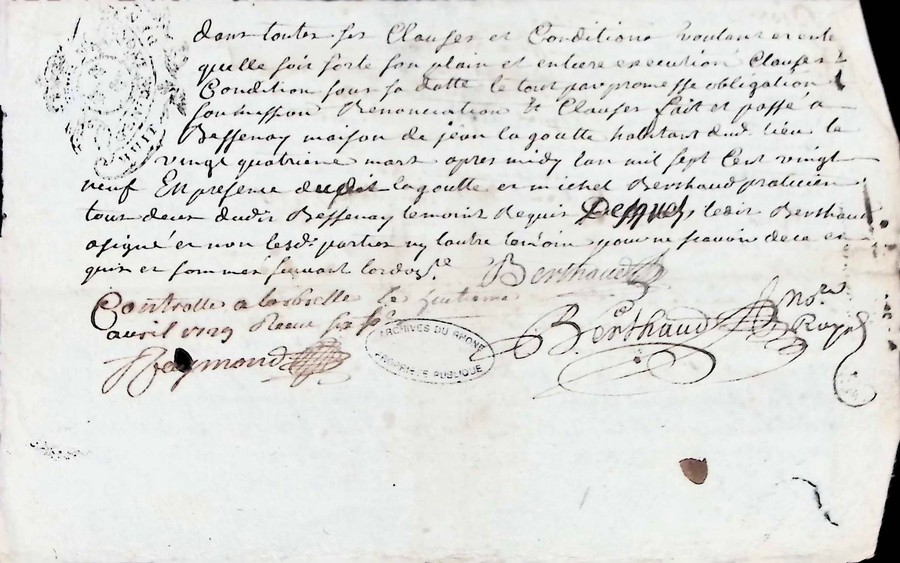 dans toutes ses Clauses et Conditions voulant et ent
quelle soit sorte son plain et entiere execution Clauses &
Condition sous sa datte le tout par promesse obligation
soumission Renonciation & Clauses fait et passé a
Bessenay maison de jean lagoutte habitant dud. lieu le
vingt quatrieme mars apres midy lan mil sept Cent vingt
neuf En présence dudit lagoutte et michel Berthaud praticien
tous deux dudit Bessenay temoins Requis Desquels ledit Berthaud
a signé et non lesd. parties ny lautre temoin pour ne scavoir de ce en
quis et sommés suivant lordoce
Berthaud
Controlle a larbrelle le huitieme
avril 1729 Receu six s.
Berthaud nore Royal
Reymond
HUIT
ARCHIVES DU RHONE
PROPRIETE PUBLIQUE